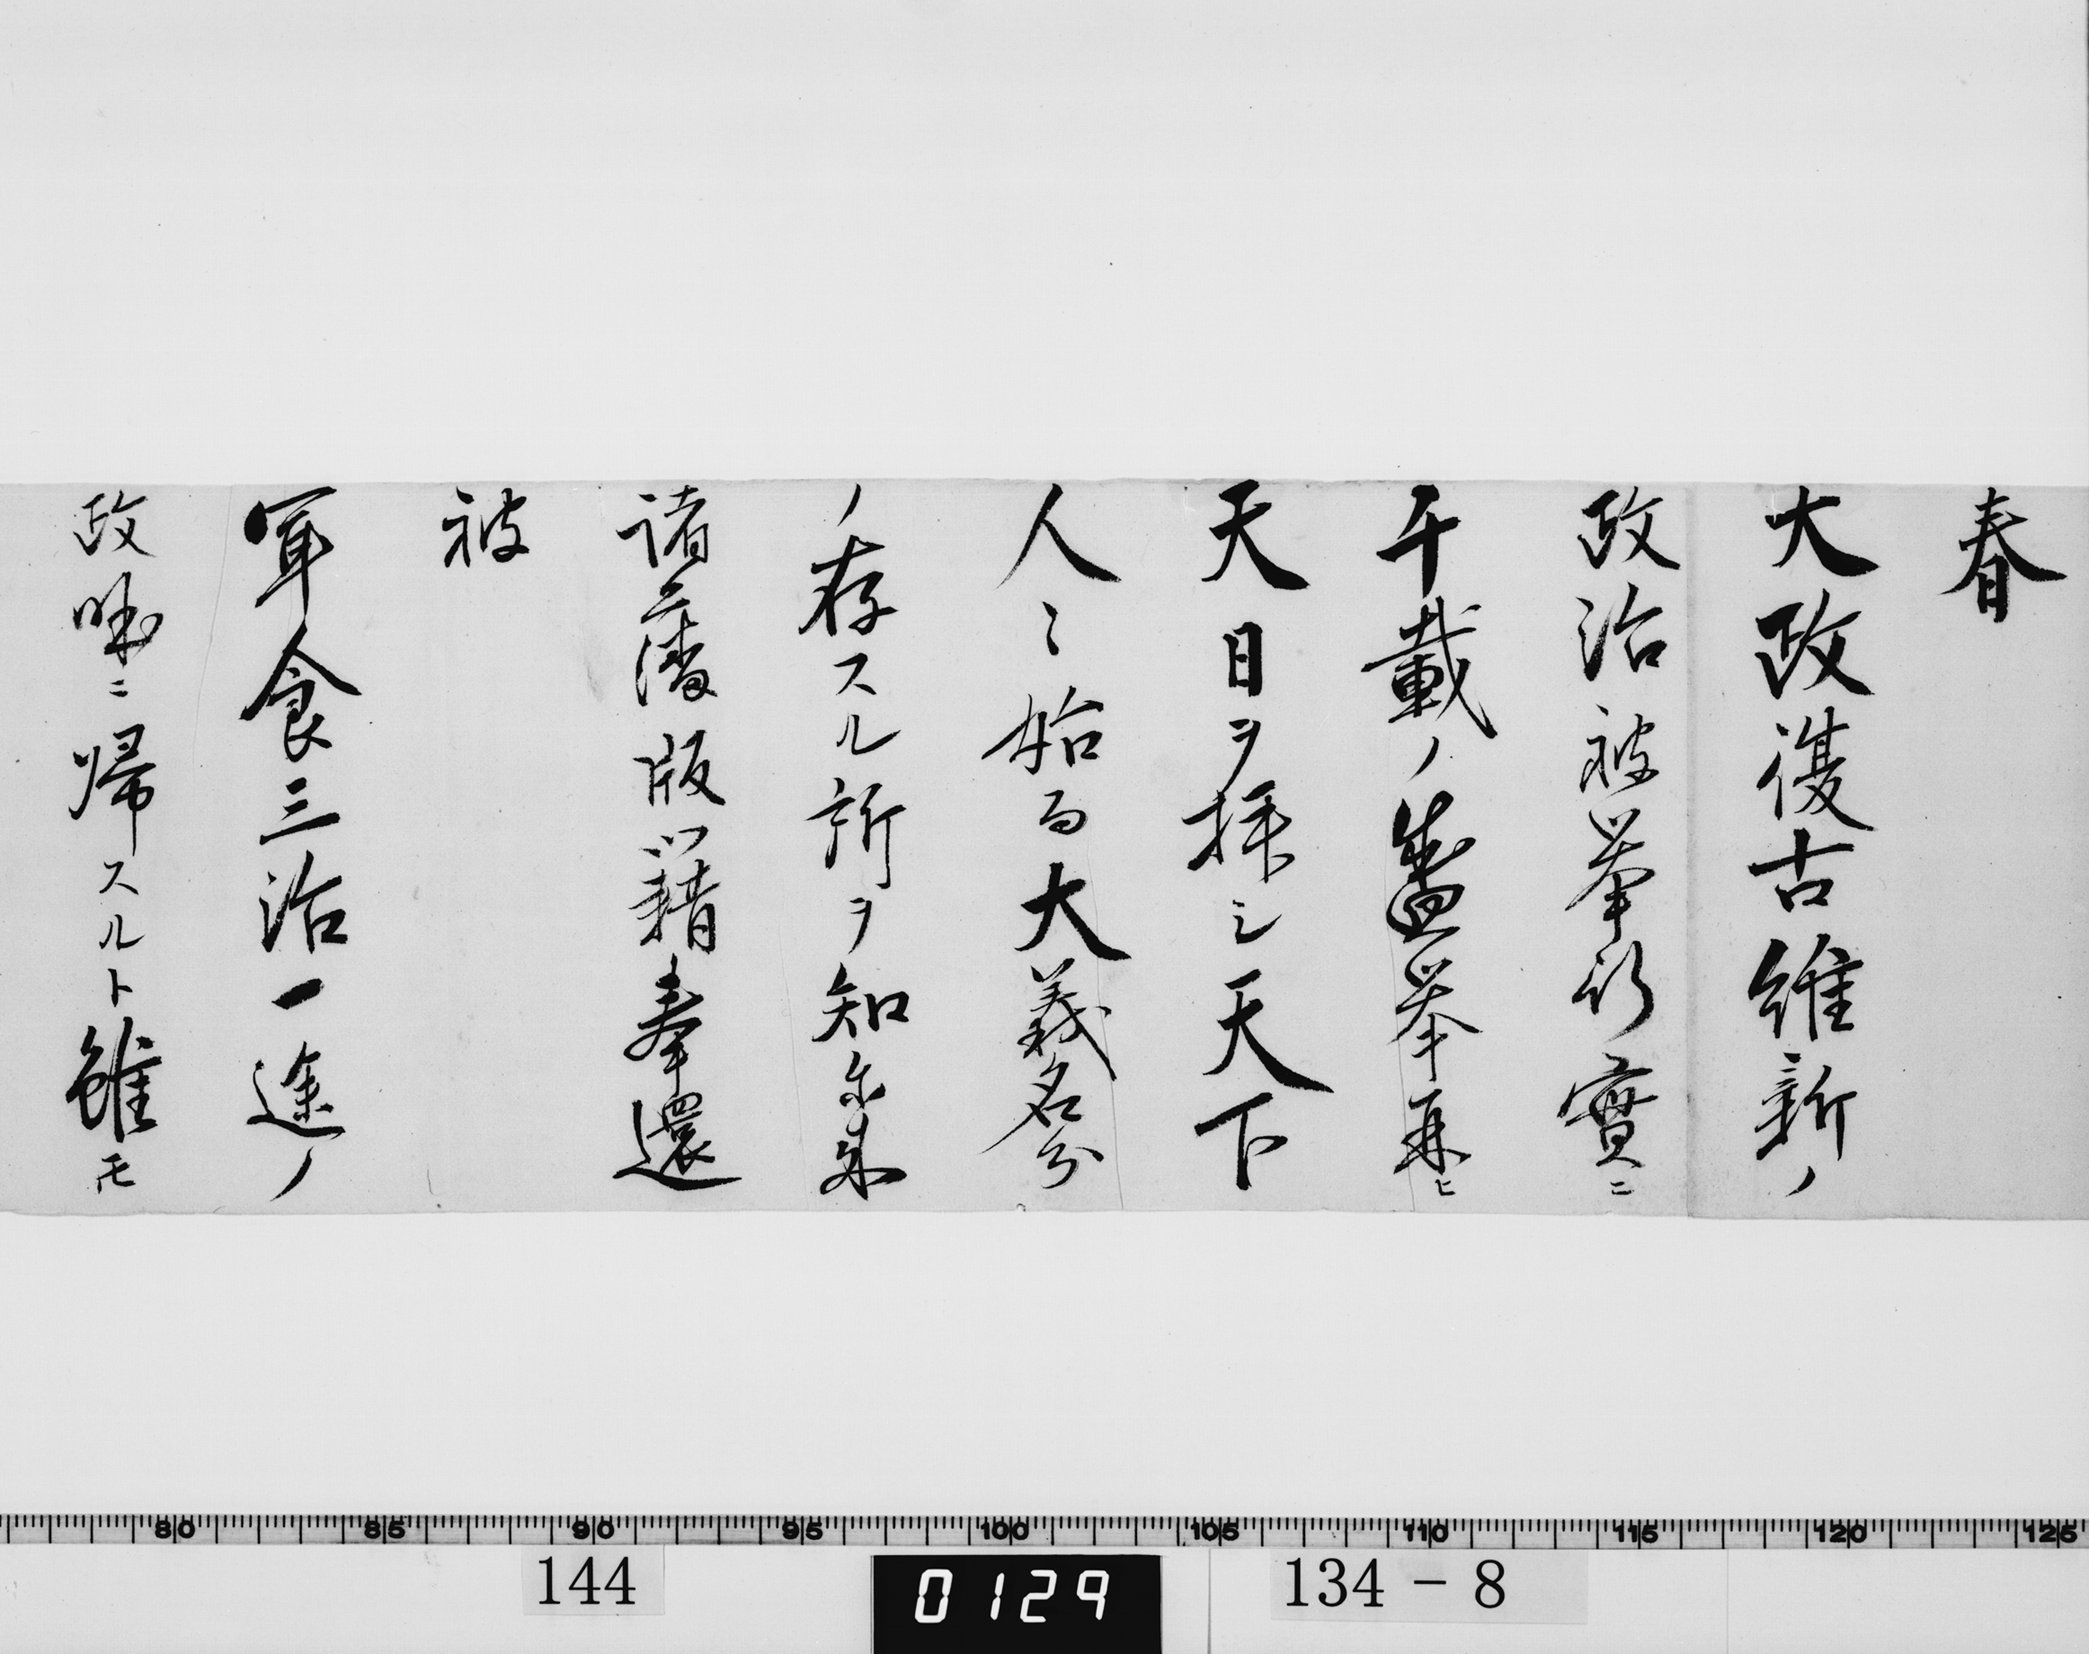 春
大政復古維新ノ
政治被挙行実ニ
千載ノ盛挙再ヒ
天日ヲ拝シ天下
人々始而大義名分
ノ存スル所ヲ知尓来
諸藩版籍奉還
被
軍食三治一途ノ
政ニ帰スルト雖モ
80 85 90 95 100 105 110 115 120 125
144 0129 134-8